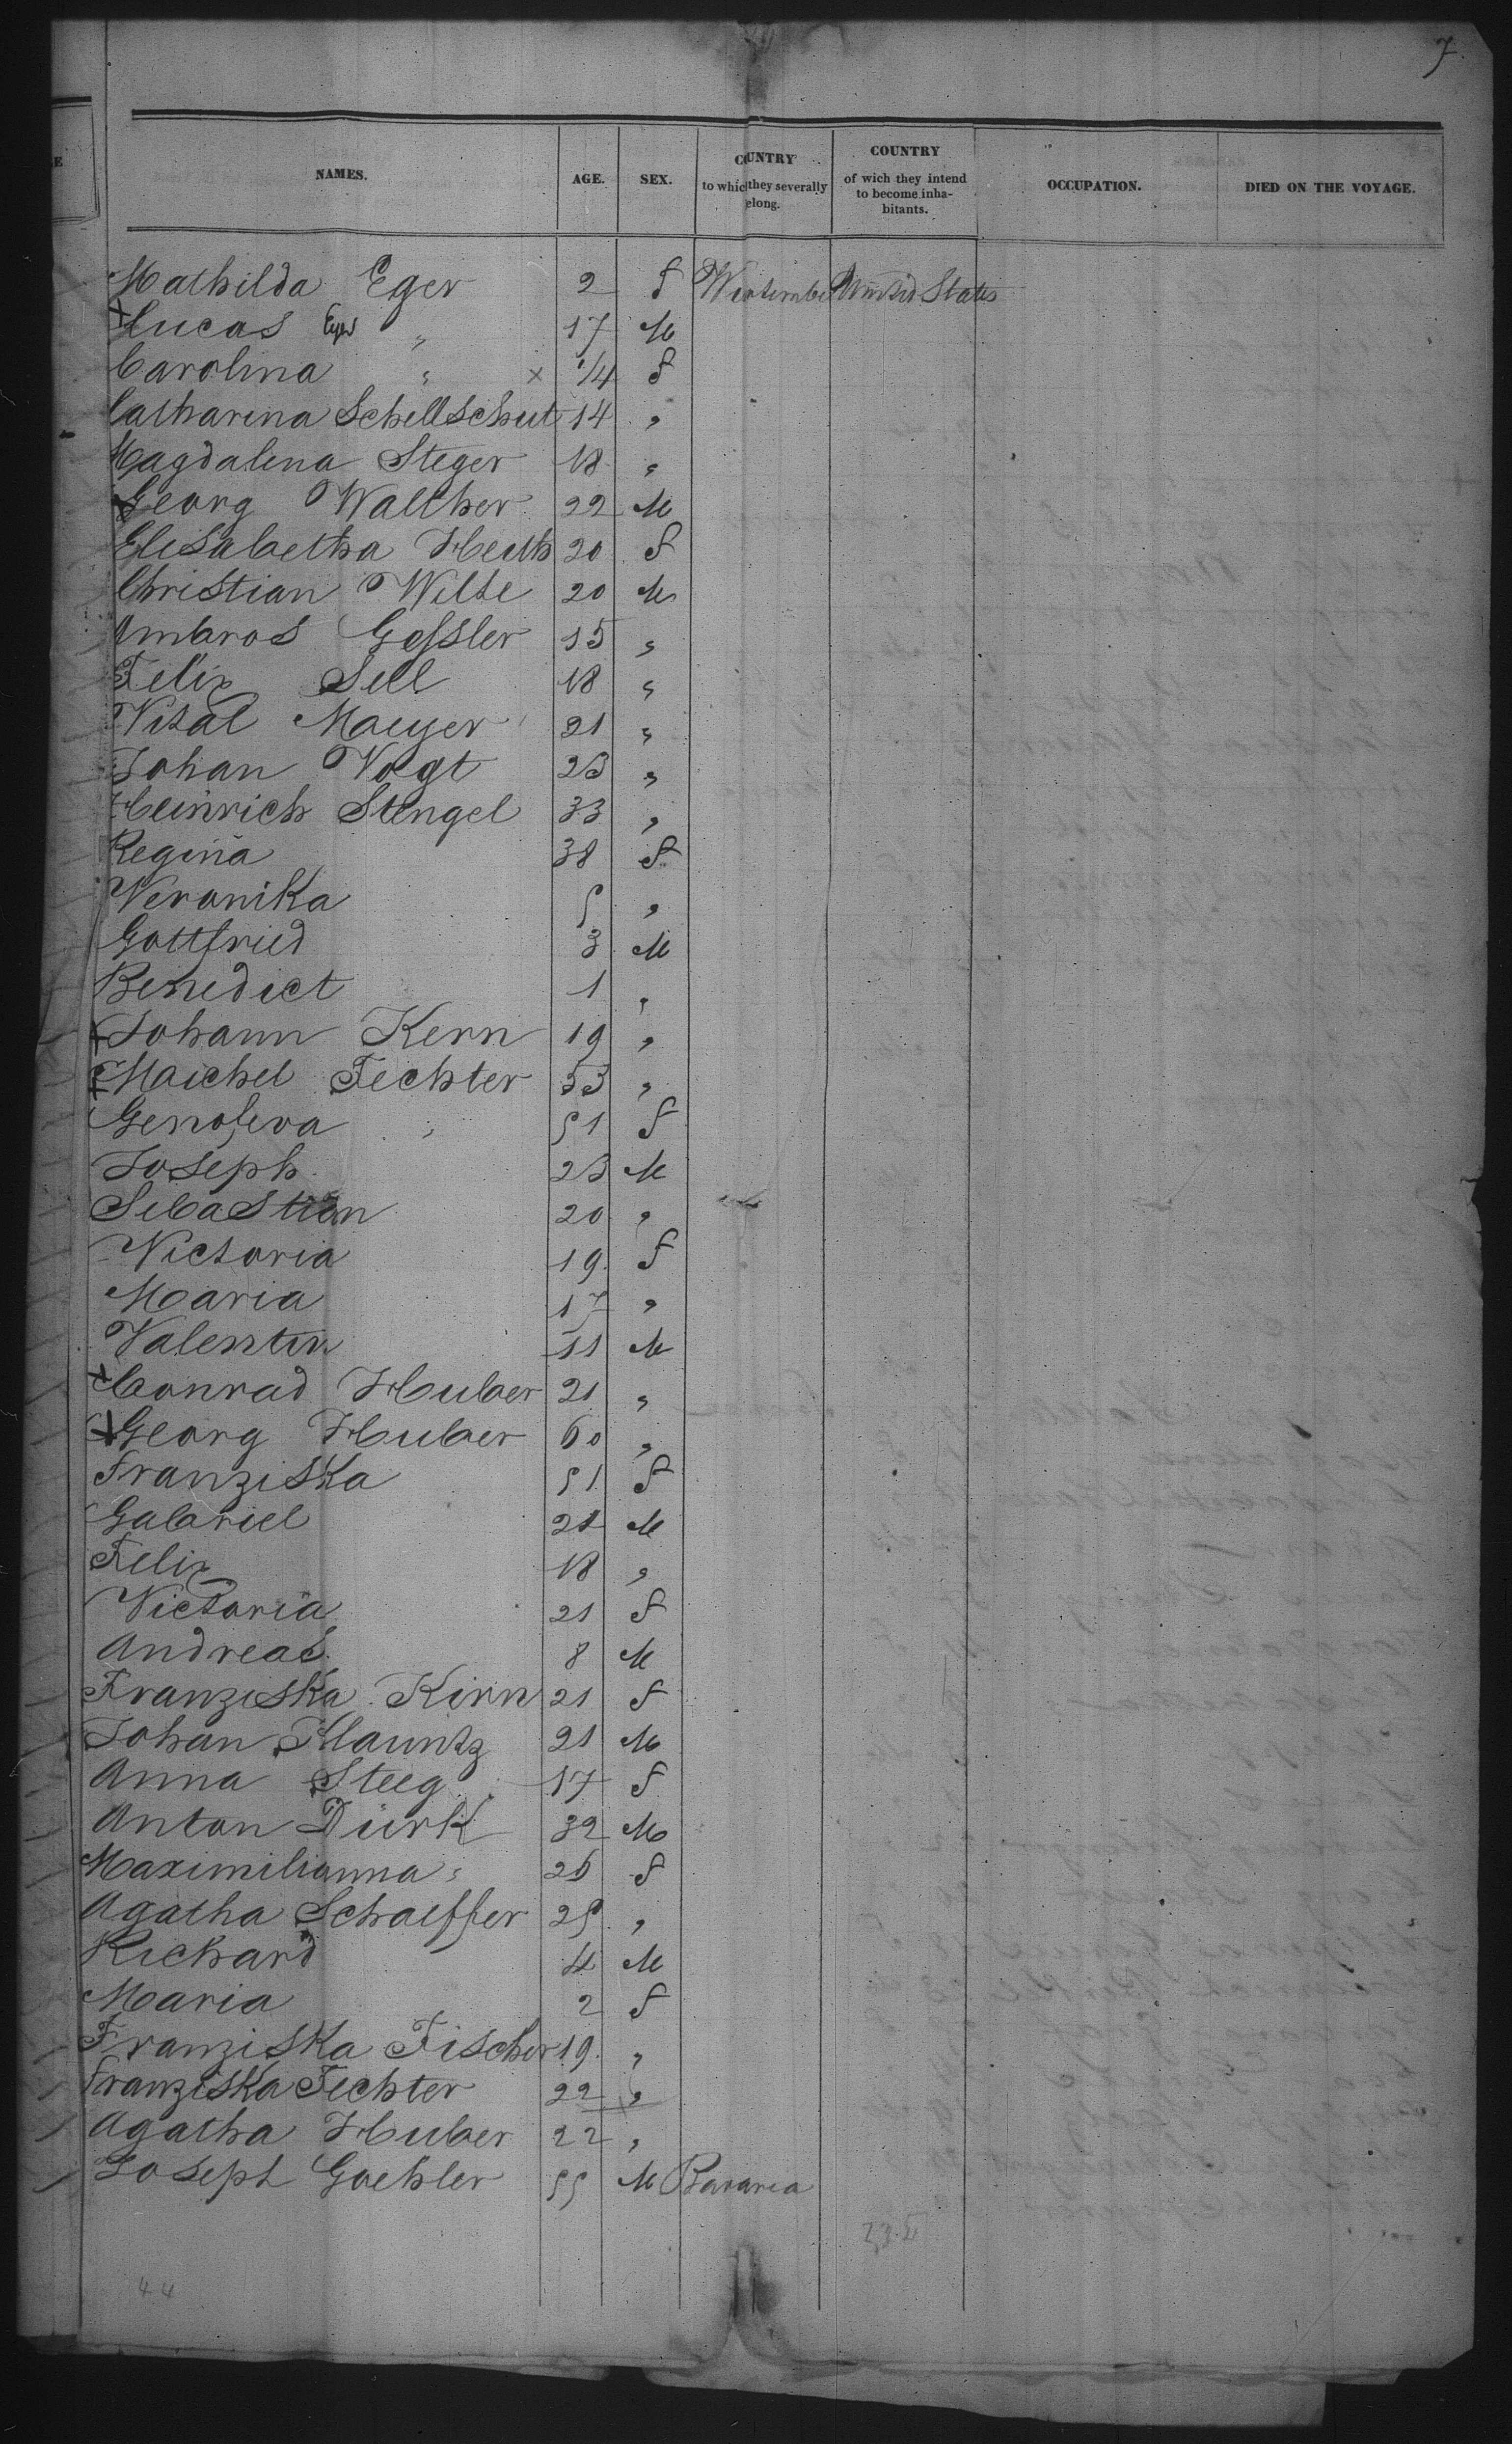 7.
NAMES. AGE. SEX. COUNTRY to which they severally elong. COUNTRY of wich they intend to become inha-bitants. OCCUPATION. DIED ON THE VOYAGE.
Mathilda Eger 2 f United States
Lucas Eger " 17 M
Carolina " x 1/4 f
Catharina Schellschut 14 "
Magdalena Steger 18 "
Georg Walther 22 M
Elisabetha Heith 20 f
Christian Wilte 20 M
Ambros Gessler 15 "
Felix Sell 18 "
Vital Maeyer 21 "
Johan Vogt 23 "
Heinrich Stengel 33 "
Regina 38 f
Veronika 5 "
Gottfried 3 M
Benedict 1 "
Johann Kern 19 "
Maichel Fechter 53 "
Genofeva " 51 f
Joseph 23 M
Sebastian 20 "
Victoria 19 f
Maria 17 "
Valentin 11 M
Conrad Huber 21 "
Georg Huber 60 "
Franziska 51 f
Gabriel 21 M
Felix 18 "
Victoria 21 f
Andreas 8 M
Franziska Kirn 21 f
Johan Hauntz 21 M
Anna Steeg 17 f
Anton Dürk 32 M
Maximilianna " 26 f
Agatha Schaeffer 25 "
Richard 4 M
Maria 2 f
Franziska Fischer 19 "
Franziska Fechter 22 "
Agatha Huber 22 "
Joseph Goehler 55 M Bavaria
44